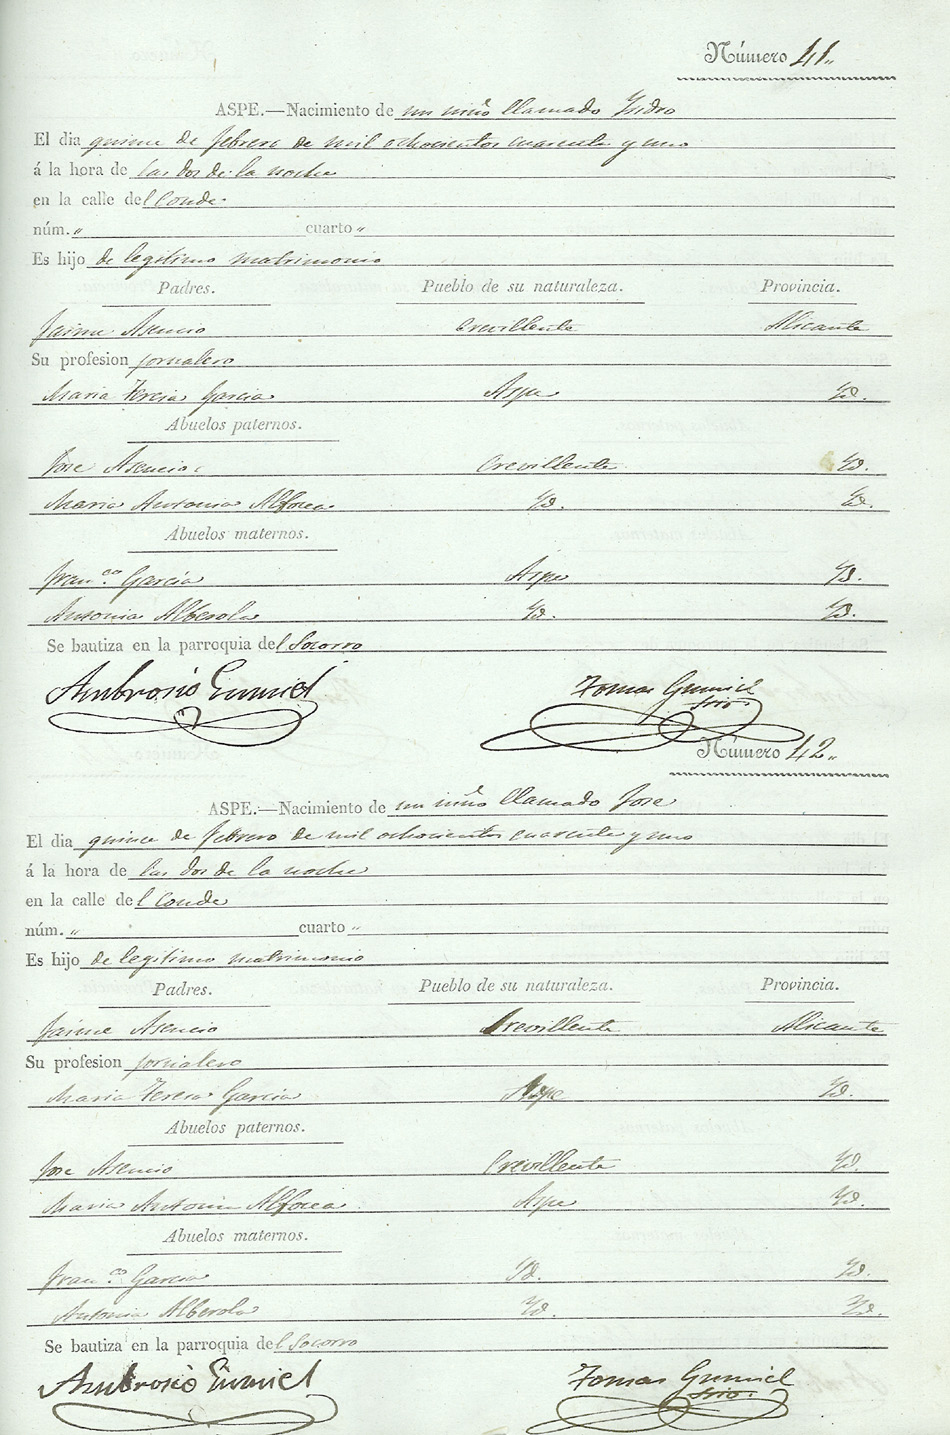 Número 41"
ASPE.—Nacimiento de un niño llamado Ysidro
El dia quince de febrero de mil ochocientos cuarenta y uno
á la hora de las dos de la noche
en la calle del Conde
núm. " cuarto "
Es hijo de legitimo matrimonio
Padres. Pueblo de su naturaleza. Provincia.
Jaime Asencio Crevillente Alicante
Su profesion jornalero
Maria Teresa Garcia Aspe Yd.
Abuelos paternos.
Jose Asencio Crevillente Yd.
Maria Antonia Alfosea Yd. Yd.
Abuelos maternos.
Fran.co Garcia Aspe Yd.
Antonia Alberola Yd. Yd.
Se bautiza en la parroquia del Socorro
Ambrosio Tomas srio.
Número 42"
ASPE.—Nacimiento de un niño llamado Jose
El dia quince de febrero de mil ochocientos cuarenta y uno
á la hora de las dos de la noche
en la calle del Conde
núm. " cuarto "
Es hijo de legitimo matrimonio
Padres. Pueblo de su naturaleza. Provincia.
Jaime Asencio Crevillente Alicante
Su profesion jornalero
Maria Teresa Garcia Aspe Yd.
Abuelos paternos.
Jose Asencio Crevillente Yd.
Maria Antonia Alfosea Aspe Yd.
Abuelos maternos.
Fran.co Garcia Yd. Yd.
Antonia Alberola Yd. Yd.
Se bautiza en la parroquia del Socorro
Ambrosio Tomas srio.